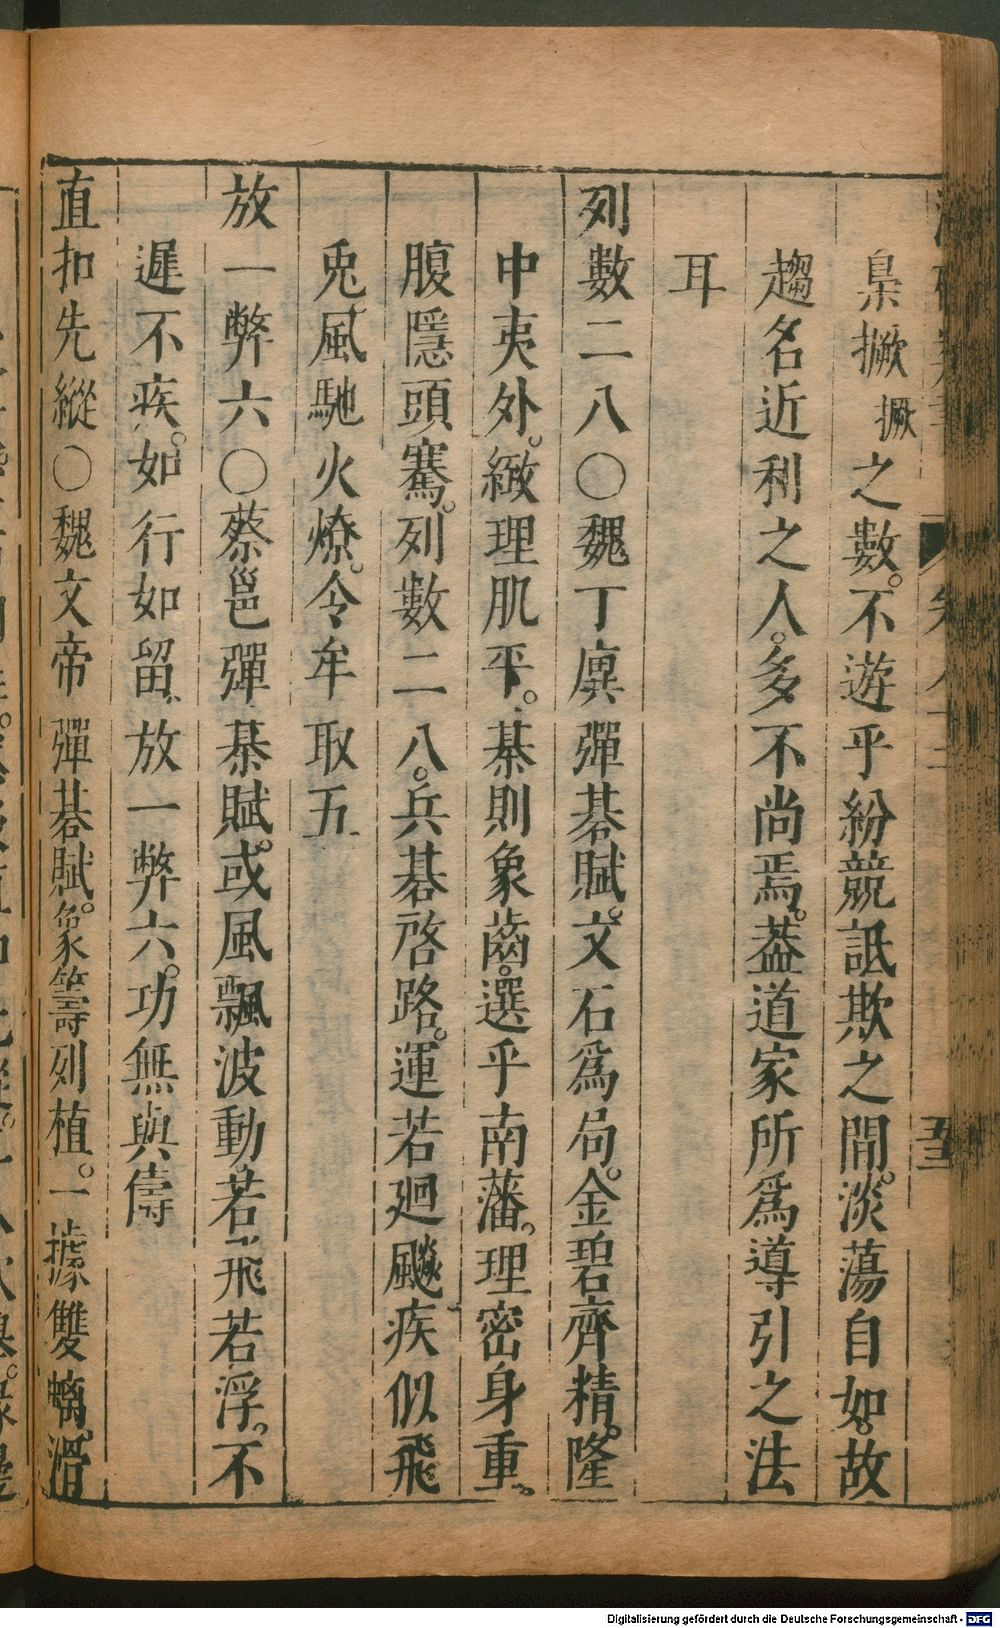 梟撅撅之數。不遊乎紛競詆欺之間。淡蕩自如。故
趨名近利之人。多不尚焉。葢道家所爲導引之法
耳
列數二八○魏丁廙彈碁賦。文石爲局。金碧齊精。隆
中夷外。緻理肌平。棊則象齒。選乎南藩。理密身重。
腹隱頭騫。列數二八。兵碁啓路。運若廻飈疾似飛
兎。風馳火燎。令牟取五
放一弊六○蔡邕彈棊賦。或風飄波動。若飛若浮。不
遲不疾。如行如留。放一弊六。功無與儔
直扣先縱○魏文帝彈碁賦。象籌列植。一據雙螭。滑
五
Digitalisierung gefördert durch die Deutsche Forschungsgemeinschaft - DFG